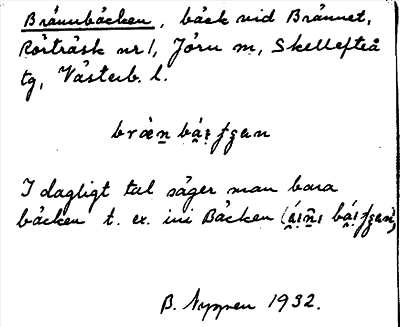 Brännbäcken, bäck vid Brännet,
Rörträsk nr 1, Jörn m, Skellefteå
tg, Västerb. l.
I dagligt tal säger man bara
bäcken t. ex. ini Bäcken
B. Nyppen 1932.